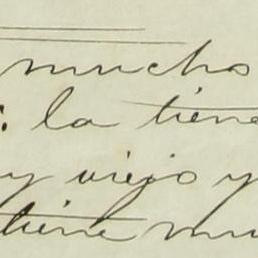 mucho
: la tiene
y viejo y
tiene mu